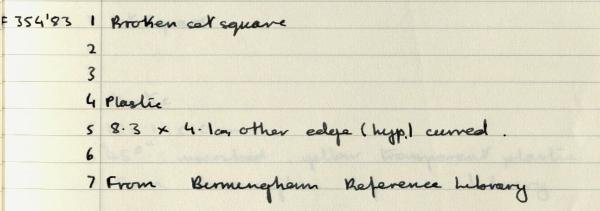 F 354'83 1 Broken set square
2
3
4 Plastic
5 8.3 x 4.1cm, other edge (hyp.) curved.
6
7 From Birmingham Reference Library